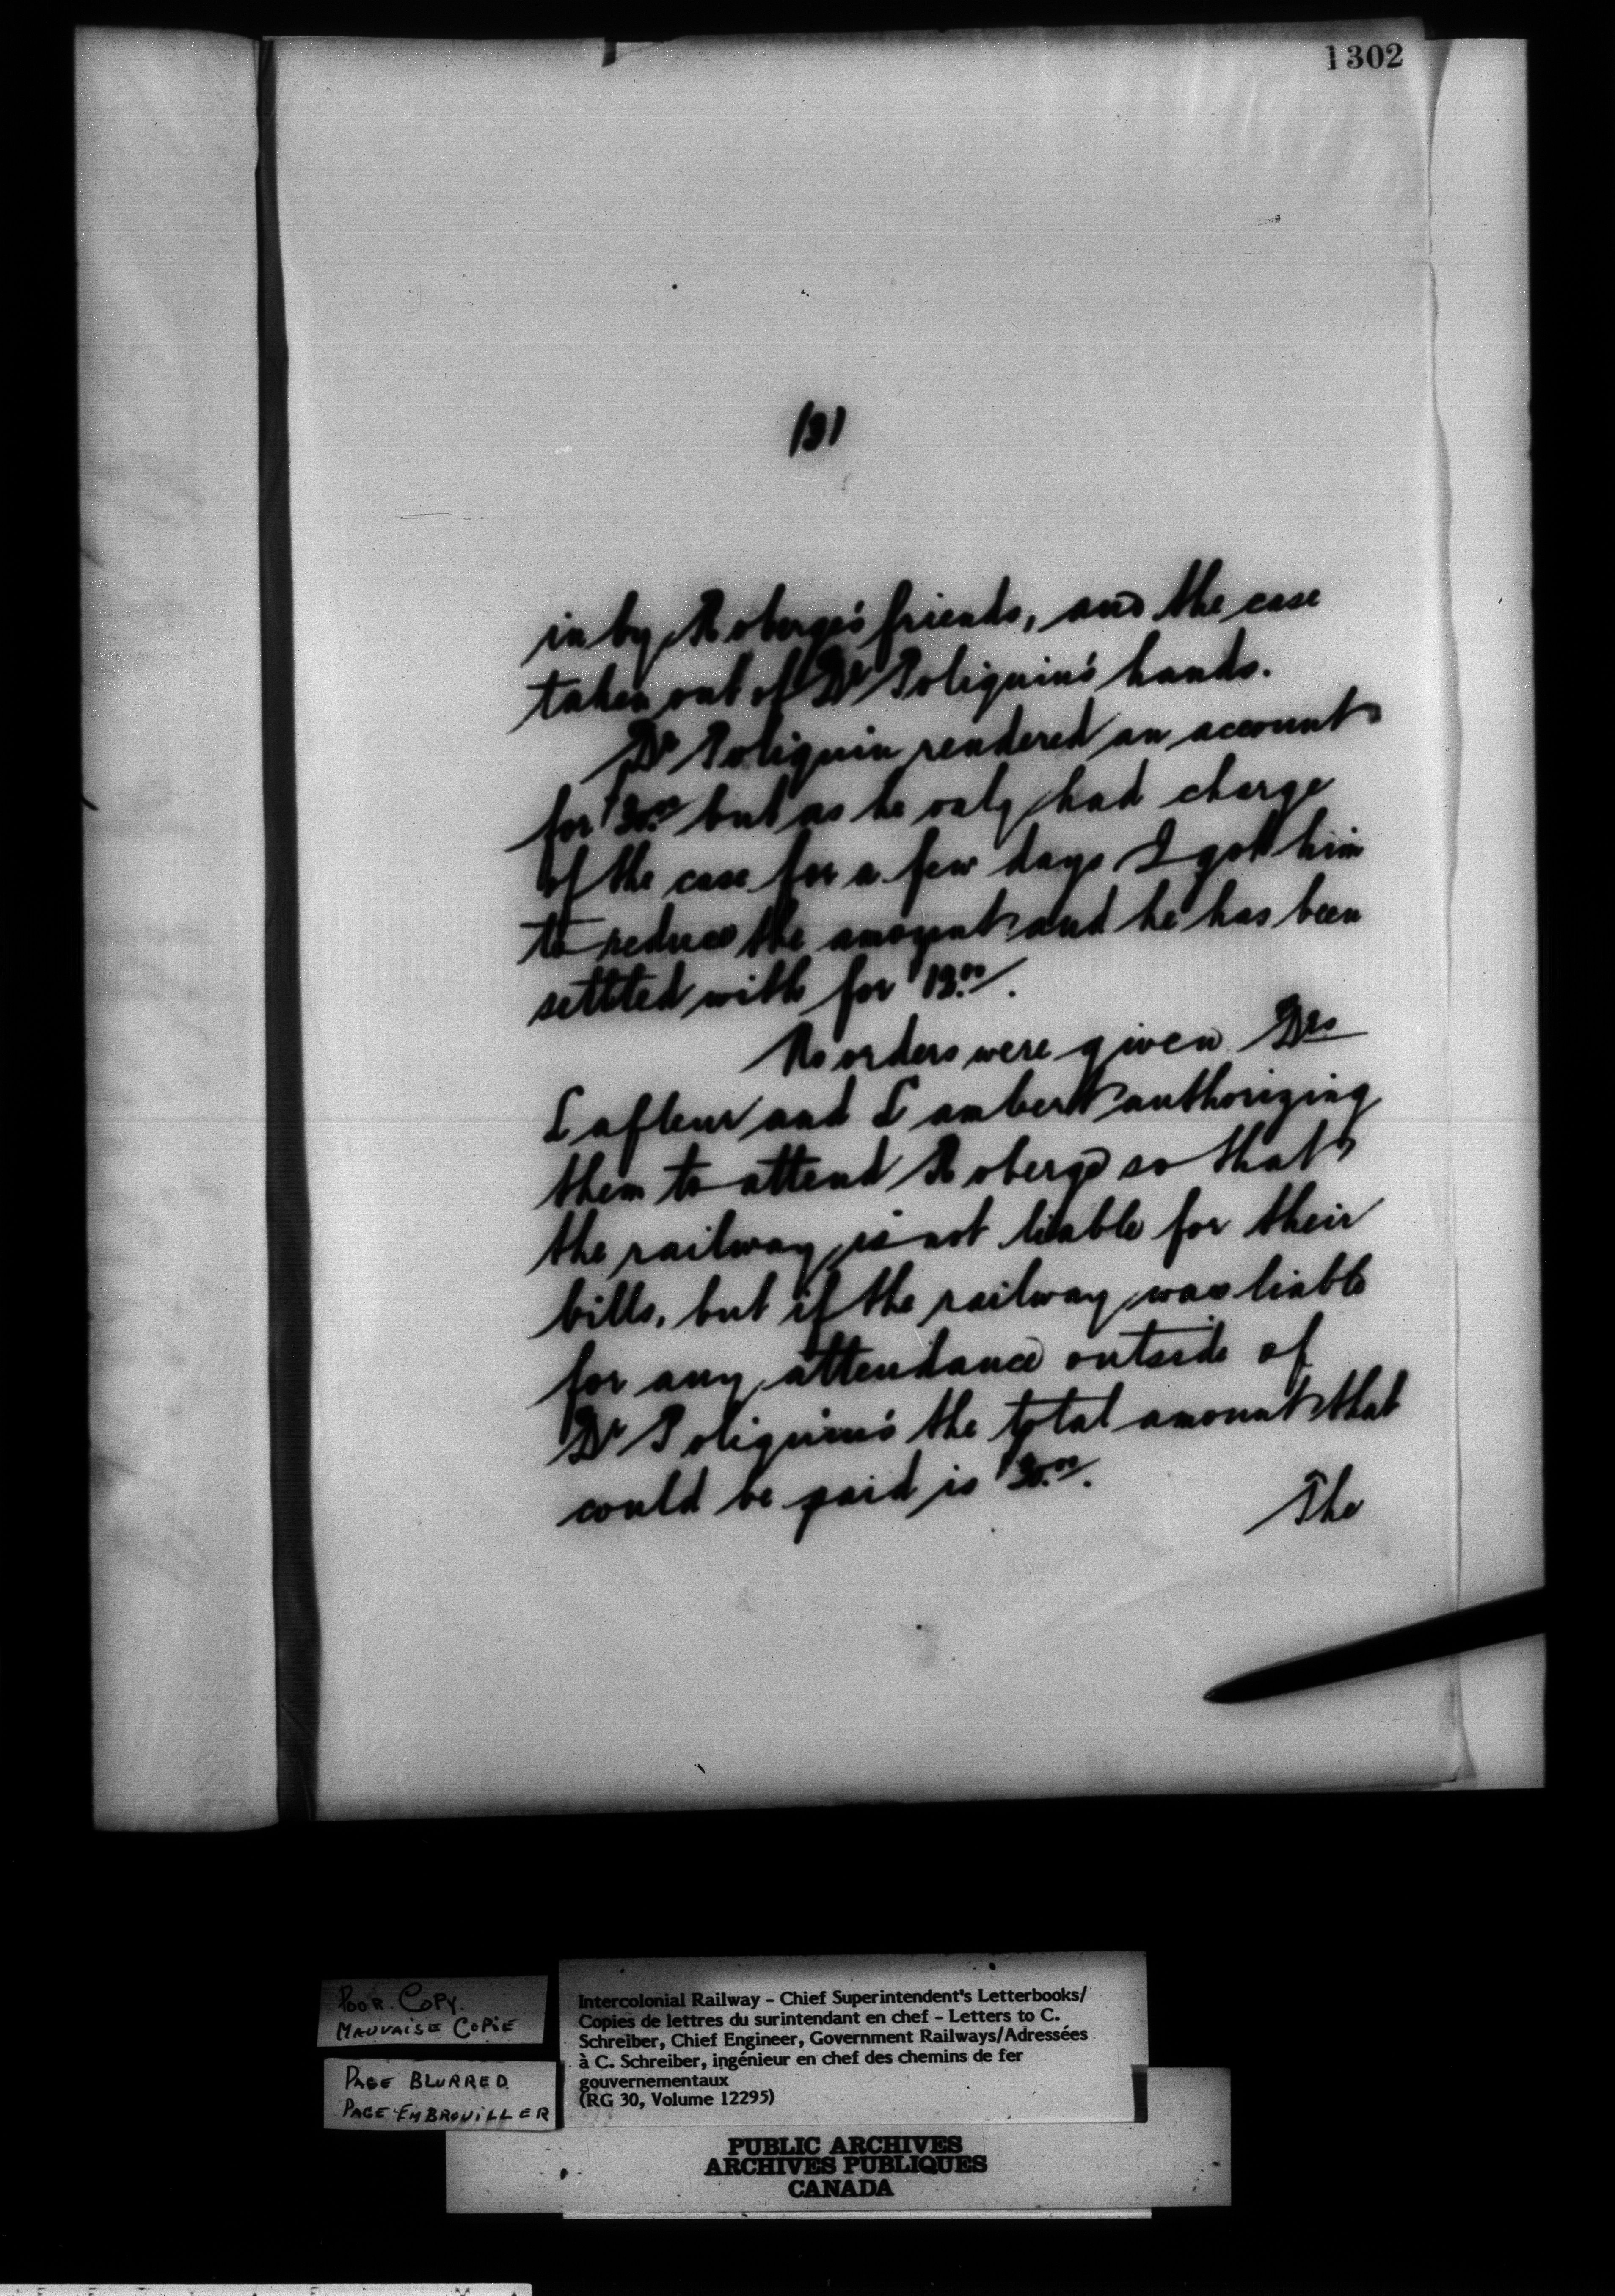 1302
(3)
in by Roberge's friends, and the case
taken out of Dr Poliquin's hands.
Dr Poliquin rendered an account
for $30.00 but as he only had charge
of the case for a few days I got him
to reduce the amount and he has been
settled with for
No orders were given Drs
Lafleur and Lambert authorizing
them to attend Roberge so that
the railway is not liable for their
bills, but if the railway was liable
for any attendance outside of
Dr Poliquin's the total amount that
could be paid is
The
POOR COPY.
MAUVAISE COPIE
PAGE BLURRED
PAGE EMBROUILLER
Intercolonial Railway – Chief Superintendent's Letterbooks/
Copies de lettres du surintendant en chef – Letters to C.
Schreiber, Chief Engineer, Government Railways/Adressées
à C. Schreiber, ingénieur en chef des chemins de fer
gouvernementaux
(RG 30, Volume 12295)
PUBLIC ARCHIVES
ARCHIVES PUBLIQUES
CANADA